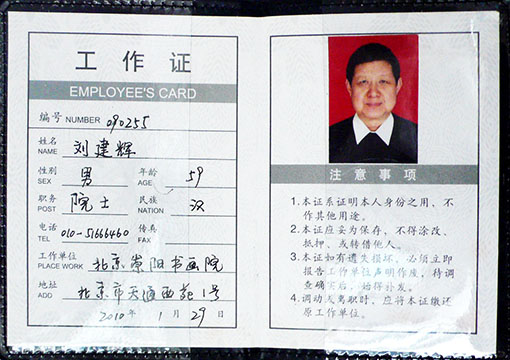 工作证
EMPLOYEE'S CARD
编号 NUMBER 090255
姓名 NAME 刘建辉
性别 SEX 男 年龄 AGE 59
职务 POST 院士 民族 NATION 汉
电话 TEL 010-51666460 传真 FAX
工作单位 PLACE WORK 北京崇阳书画院
地址 ADD 北京市天通西苑1号
2010年1月29日
注意事项
1.本证系证明本人身份之用、不
作其他用途。
2.本证应妥为保存、不得涂改、
抵押、或转借他人。
3.本证如有遗失损坏、必须立即
报告工作单位声明作废、待调
查确实后、始得补发。
4.调动或离职时、应将本证缴还
原工作单位。